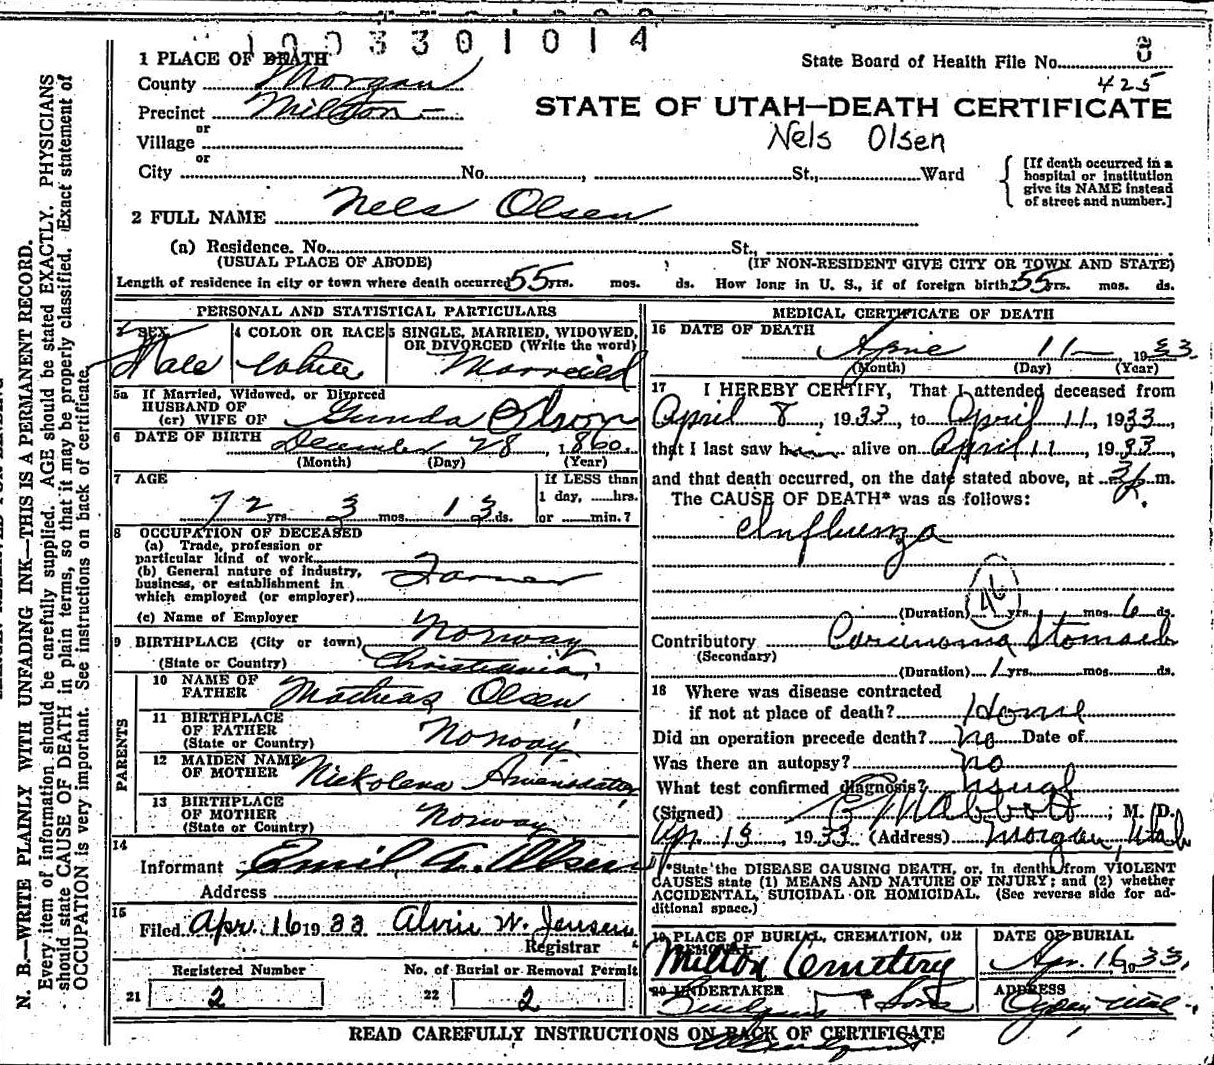 1003301014
1 PLACE OF DEATH
State Board of Health File No. 8
County Morgan
425
Precinct Milton
STATE OF UTAH—DEATH CERTIFICATE
or
Village
Nels Olsen
or
City No. , St., Ward
[If death occurred in a
hospital or institution
give its NAME instead
of street and number.]
2 FULL NAME Nels Olsen
(a) Residence. No. St.,
(USUAL PLACE OF ABODE) (IF NON-RESIDENT GIVE CITY OR TOWN AND STATE)
Length of residence in city or town where death occurred 55 yrs. mos. ds. How long in U. S., if of foreign birth? 55 yrs. mos. ds.
PERSONAL AND STATISTICAL PARTICULARS
3 SEX 4 COLOR OR RACE 5 SINGLE, MARRIED, WIDOWED,
OR DIVORCED (Write the word)
Male White Married
5a If Married, Widowed, or Divorced
HUSBAND OF
(or) WIFE OF Gunda Olson
6 DATE OF BIRTH December 28, 1860.
(Month) (Day) (Year)
7 AGE If LESS than
1 day, hrs.
72 yrs. 3 mos. 13 ds. or min.?
8 OCCUPATION OF DECEASED
(a) Trade, profession or
particular kind of work
(b) General nature of industry,
business, or establishment in
which employed (or employer) Farmer
(c) Name of Employer
9 BIRTHPLACE (City or town) Norway
(State or Country) Christiania
PARENTS
10 NAME OF
FATHER Mathias Olsen
11 BIRTHPLACE
OF FATHER Norway
(State or Country)
12 MAIDEN NAME
OF MOTHER Nickolena
13 BIRTHPLACE
OF MOTHER Norway
(State or Country)
14
Informant Emil A. Olsen
Address
15
Filed Apr. 16 1933 Alvin W. Jensen
Registrar
Registered Number No. of Burial or Removal Permit
21 2 22 2
MEDICAL CERTIFICATE OF DEATH
16 DATE OF DEATH
April 11 1933
(Month) (Day) (Year)
17 I HEREBY CERTIFY, That I attended deceased from
April 8, 1933, to April 11, 1933,
that I last saw him alive on April 11, 1933,
and that death occurred, on the date stated above, at 3 P. m.
The CAUSE OF DEATH* was as follows:
Influenza
(Duration) yrs. mos. 6 ds.
Contributory Carcinoma Stomach
(Secondary)
(Duration) 1 yrs. mos. ds.
18 Where was disease contracted
if not at place of death? Home
Did an operation precede death? no Date of
Was there an autopsy? no
What test confirmed diagnosis? usual
(Signed) Abbott; M. D.
Apr. 13, 1933 (Address) Morgan, Utah
*State the DISEASE CAUSING DEATH, or, in deaths from VIOLENT
CAUSES state (1) MEANS AND NATURE OF INJURY; and (2) whether
ACCIDENTAL, SUICIDAL OR HOMICIDAL. (See reverse side for ad-
ditional space.)
19 PLACE OF BURIAL, CREMATION, OR
REMOVAL
DATE OF BURIAL
Milton Cemetery Apr. 16 1933.
20 UNDERTAKER ADDRESS
& Sons Ogden Utah
READ CAREFULLY INSTRUCTIONS ON BACK OF CERTIFICATE
N. B.—WRITE PLAINLY WITH UNFADING INK—THIS IS A PERMANENT RECORD.
Every item of information should be carefully supplied. AGE should be stated EXACTLY. PHYSICIANS
should state CAUSE OF DEATH in plain terms, so that it may be properly classified. Exact statement of
OCCUPATION is very important. See instructions on back of certificate.